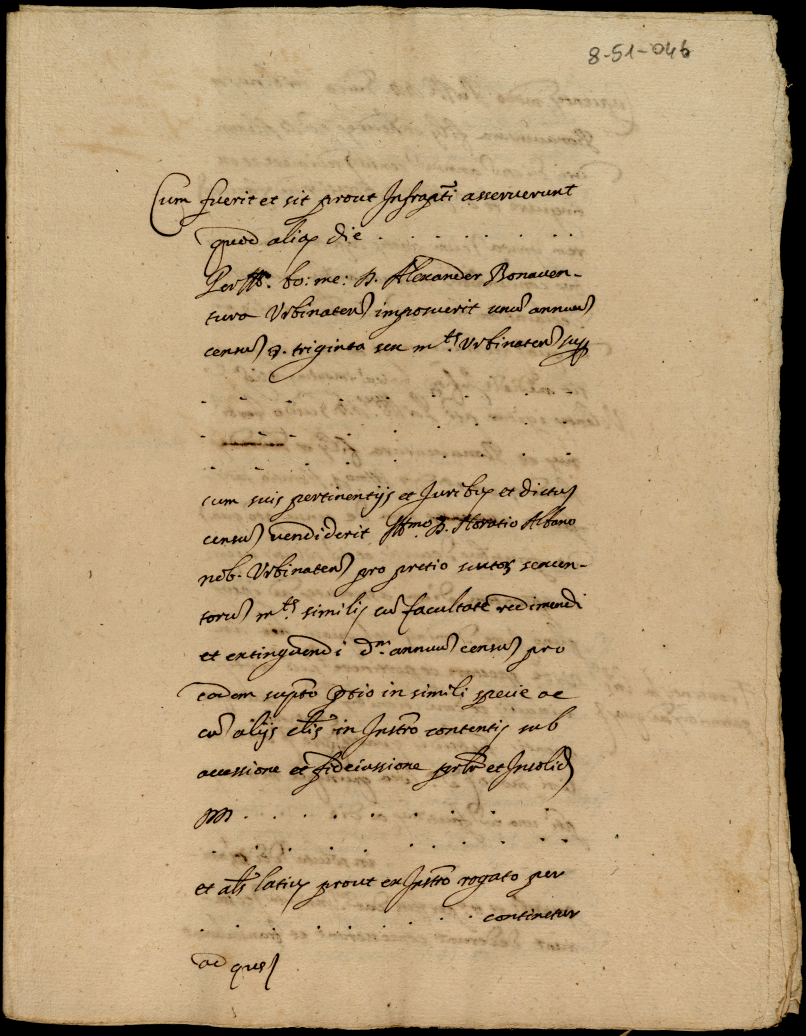 8-51-046
Cum fuerit et sit prout Infrapti asseruerunt
quod alias die . . . . . . . .
bo: me: D. Alexander Bonaven-
tura Urbinaten imposuerit unu annuu
censu triginta seu mts Urbinaten
cum suis pertinentijs et Juribus et dictu
censu vendiderit Illmo D. Horatio Albano
nob. Urbinaten pro pretio scutor sercen-
toru mts similis cu facultate redimendi
et extinguendi dm annuu censu pro
eodem supto ptio in simili specie ac
cu alijs clis in Instro contentis sub
accessione et fideiussione et Insolid
m . . . . . . . .
et als latius prout ex Instro rogato per
. . . . . . . continetur
ad quod